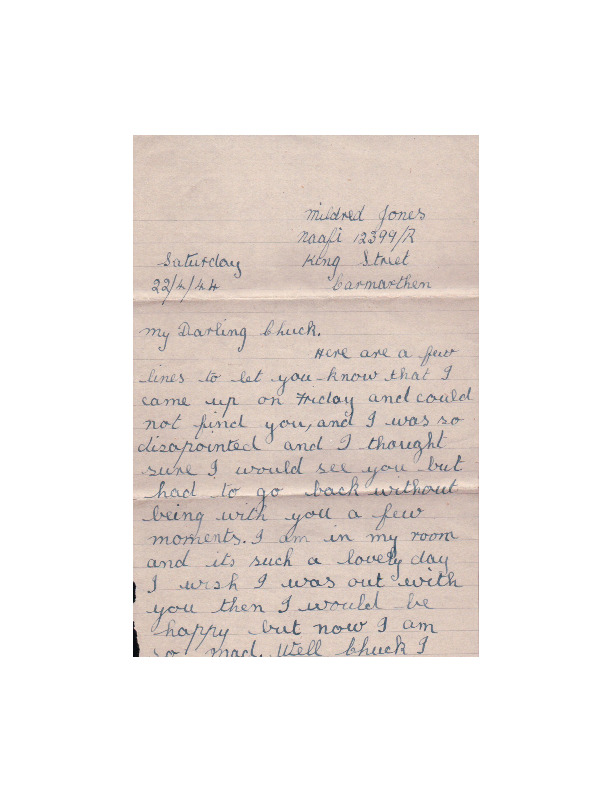 Mildred Jones
Naafi 12399/R
Saturday King Street
22/4/44 Carmarthen
My Darling Chuck.
Here are a few
lines to let you know that I
came up on Friday and could
not find you, and I was so
disapointed and I thought
sure I would see you but
had to go back without
being with you a few
moments. I am in my room
and its such a lovely day
I wish I was out with
you then I would be
happy but now I am
so mad. Well Chuck I